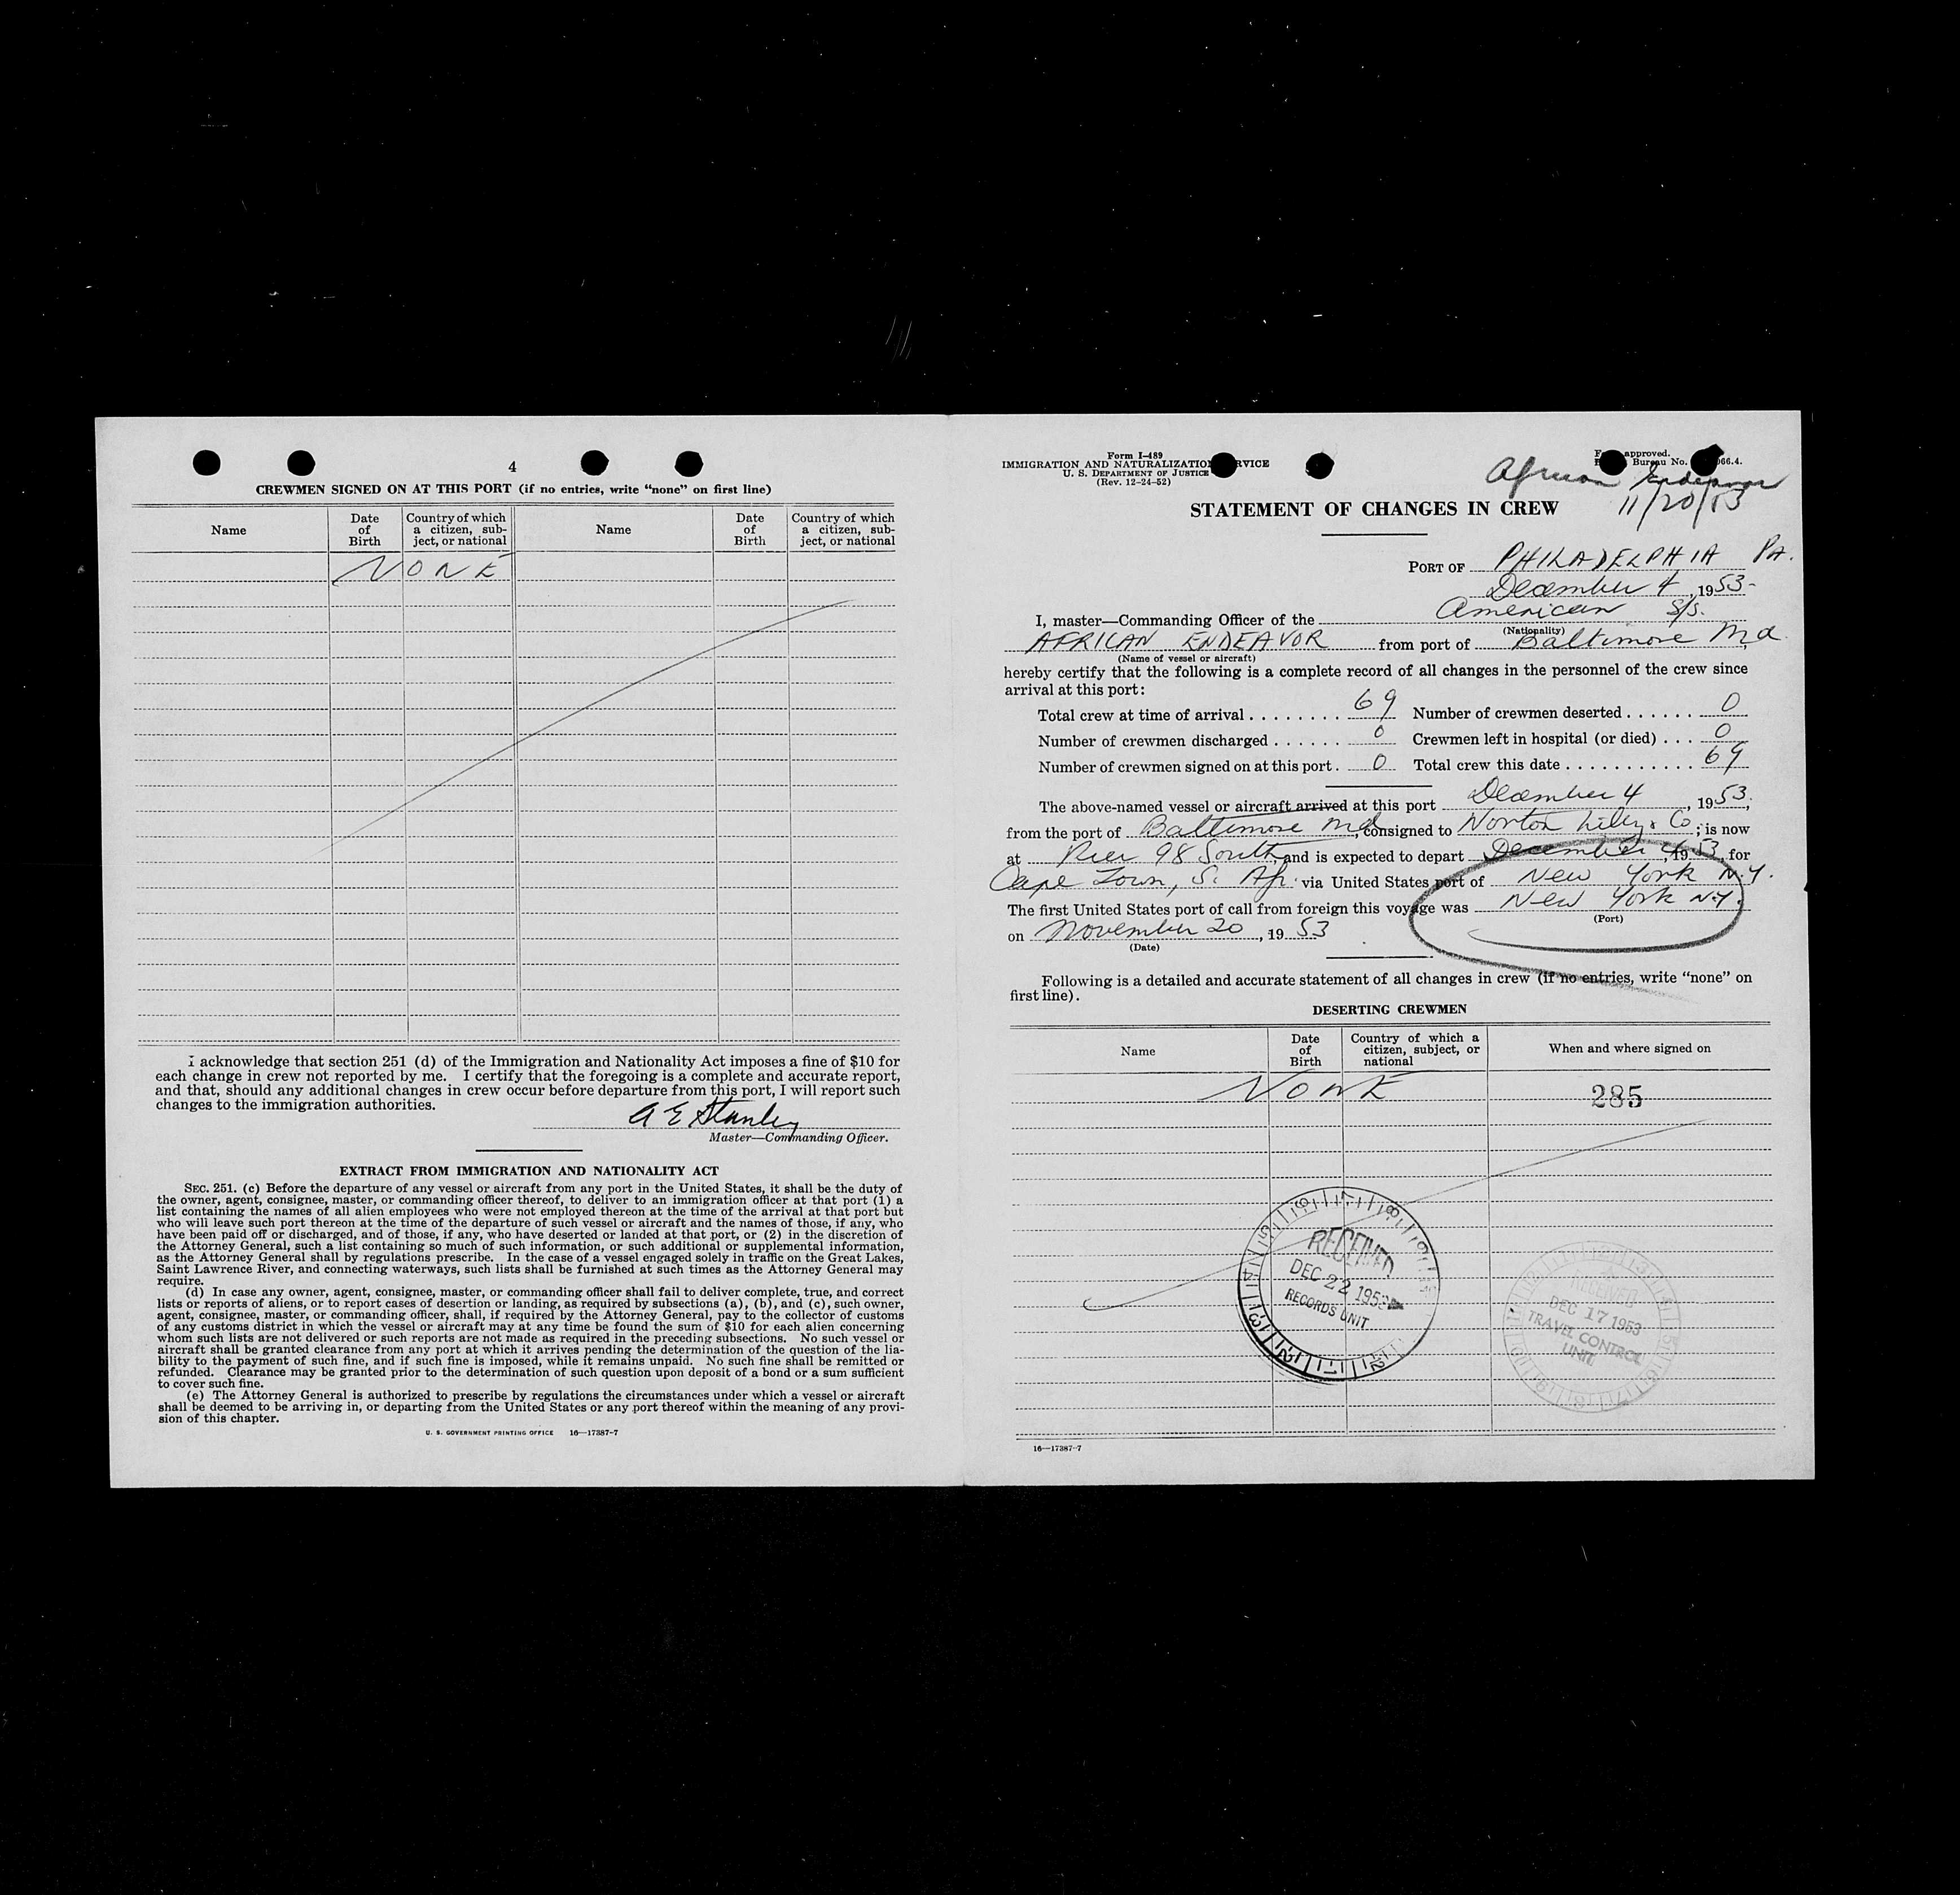 4
CREWMEN SIGNED ON AT THIS PORT (if no entries, write “none” on first line)
Name
Date of Birth
Country of which a citizen, subject, or national
Name
Date of Birth
Country of which a citizen, subject, or national
NONE
I acknowledge that section 251 (d) of the Immigration and Nationality Act imposes a fine of $10 for
each change in crew not reported by me. I certify that the foregoing is a complete and accurate report,
and that, should any additional changes in crew occur before departure from this port, I will report such
changes to the immigration authorities.
A E Stanley
Master—Commanding Officer.
EXTRACT FROM IMMIGRATION AND NATIONALITY ACT
SEC. 251. (c) Before the departure of any vessel or aircraft from any port in the United States, it shall be the duty of
the owner, agent, consignee, master, or commanding officer thereof, to deliver to an immigration officer at that port (1) a
list containing the names of all alien employees who were not employed thereon at the time of the arrival at that port but
who will leave such port thereon at the time of the departure of such vessel or aircraft and the names of those, if any, who
have been paid off or discharged, and of those, if any, who have deserted or landed at that port, or (2) in the discretion of
the Attorney General, such a list containing so much of such information, or such additional or supplemental information,
as the Attorney General shall by regulations prescribe. In the case of a vessel engaged solely in traffic on the Great Lakes,
Saint Lawrence River, and connecting waterways, such lists shall be furnished at such times as the Attorney General may
require.
(d) In case any owner, agent, consignee, master, or commanding officer shall fail to deliver complete, true, and correct
lists or reports of aliens, or to report cases of desertion or landing, as required by subsections (a), (b), and (c), such owner,
agent, consignee, master, or commanding officer, shall, if required by the Attorney General, pay to the collector of customs
of any customs district in which the vessel or aircraft may at any time be found the sum of $10 for each alien concerning
whom such lists are not delivered or such reports are not made as required in the preceding subsections. No such vessel or
aircraft shall be granted clearance from any port at which it arrives pending the determination of the question of the lia-
bility to the payment of such fine, and if such fine is imposed, while it remains unpaid. No such fine shall be remitted or
refunded. Clearance may be granted prior to the determination of such question upon deposit of a bond or a sum sufficient
to cover such fine.
(e) The Attorney General is authorized to prescribe by regulations the circumstances under which a vessel or aircraft
shall be deemed to be arriving in, or departing from the United States or any port thereof within the meaning of any provi-
sion of this chapter.
U. S. GOVERNMENT PRINTING OFFICE 16—17387-7
Form I-489
IMMIGRATION AND NATURALIZATION SERVICE
U. S. DEPARTMENT OF JUSTICE
(Rev. 12-24-52)
approved.
Bureau No. 066.4.
African Endeavor
11/20/53
STATEMENT OF CHANGES IN CREW
PORT OF PHILADELPHIA PA.
December 4, 1953-
I, master—Commanding Officer of the American S/S.
(Nationality)
AFRICAN ENDEAVOR from port of Baltimore Md
(Name of vessel or aircraft)
hereby certify that the following is a complete record of all changes in the personnel of the crew since
arrival at this port:
Total crew at time of arrival ........ 69 Number of crewmen deserted ...... 0
Number of crewmen discharged ...... 0 Crewmen left in hospital (or died) ... 0
Number of crewmen signed on at this port. 0 Total crew this date ........... 69
The above-named vessel or aircraft arrived at this port December 4, 1953,
from the port of Baltimore Md, consigned to Norton Lilly & Co; is now
at Pier 98 South, and is expected to depart December 4, 1953, for
Cape Town, S. Afr. via United States port of New York N.Y.
The first United States port of call from foreign this voyage was New York N.Y.
(Port)
on November 20, 1953
(Date)
Following is a detailed and accurate statement of all changes in crew (if no entries, write “none” on
first line).
DESERTING CREWMEN
Name
Date of Birth
Country of which a citizen, subject, or national
When and where signed on
NONE
285
RECEIVED
DEC 22 1953
RECORDS UNIT
RECEIVED
DEC 17 1953
TRAVEL CONTROL
UNIT
16—17387-7